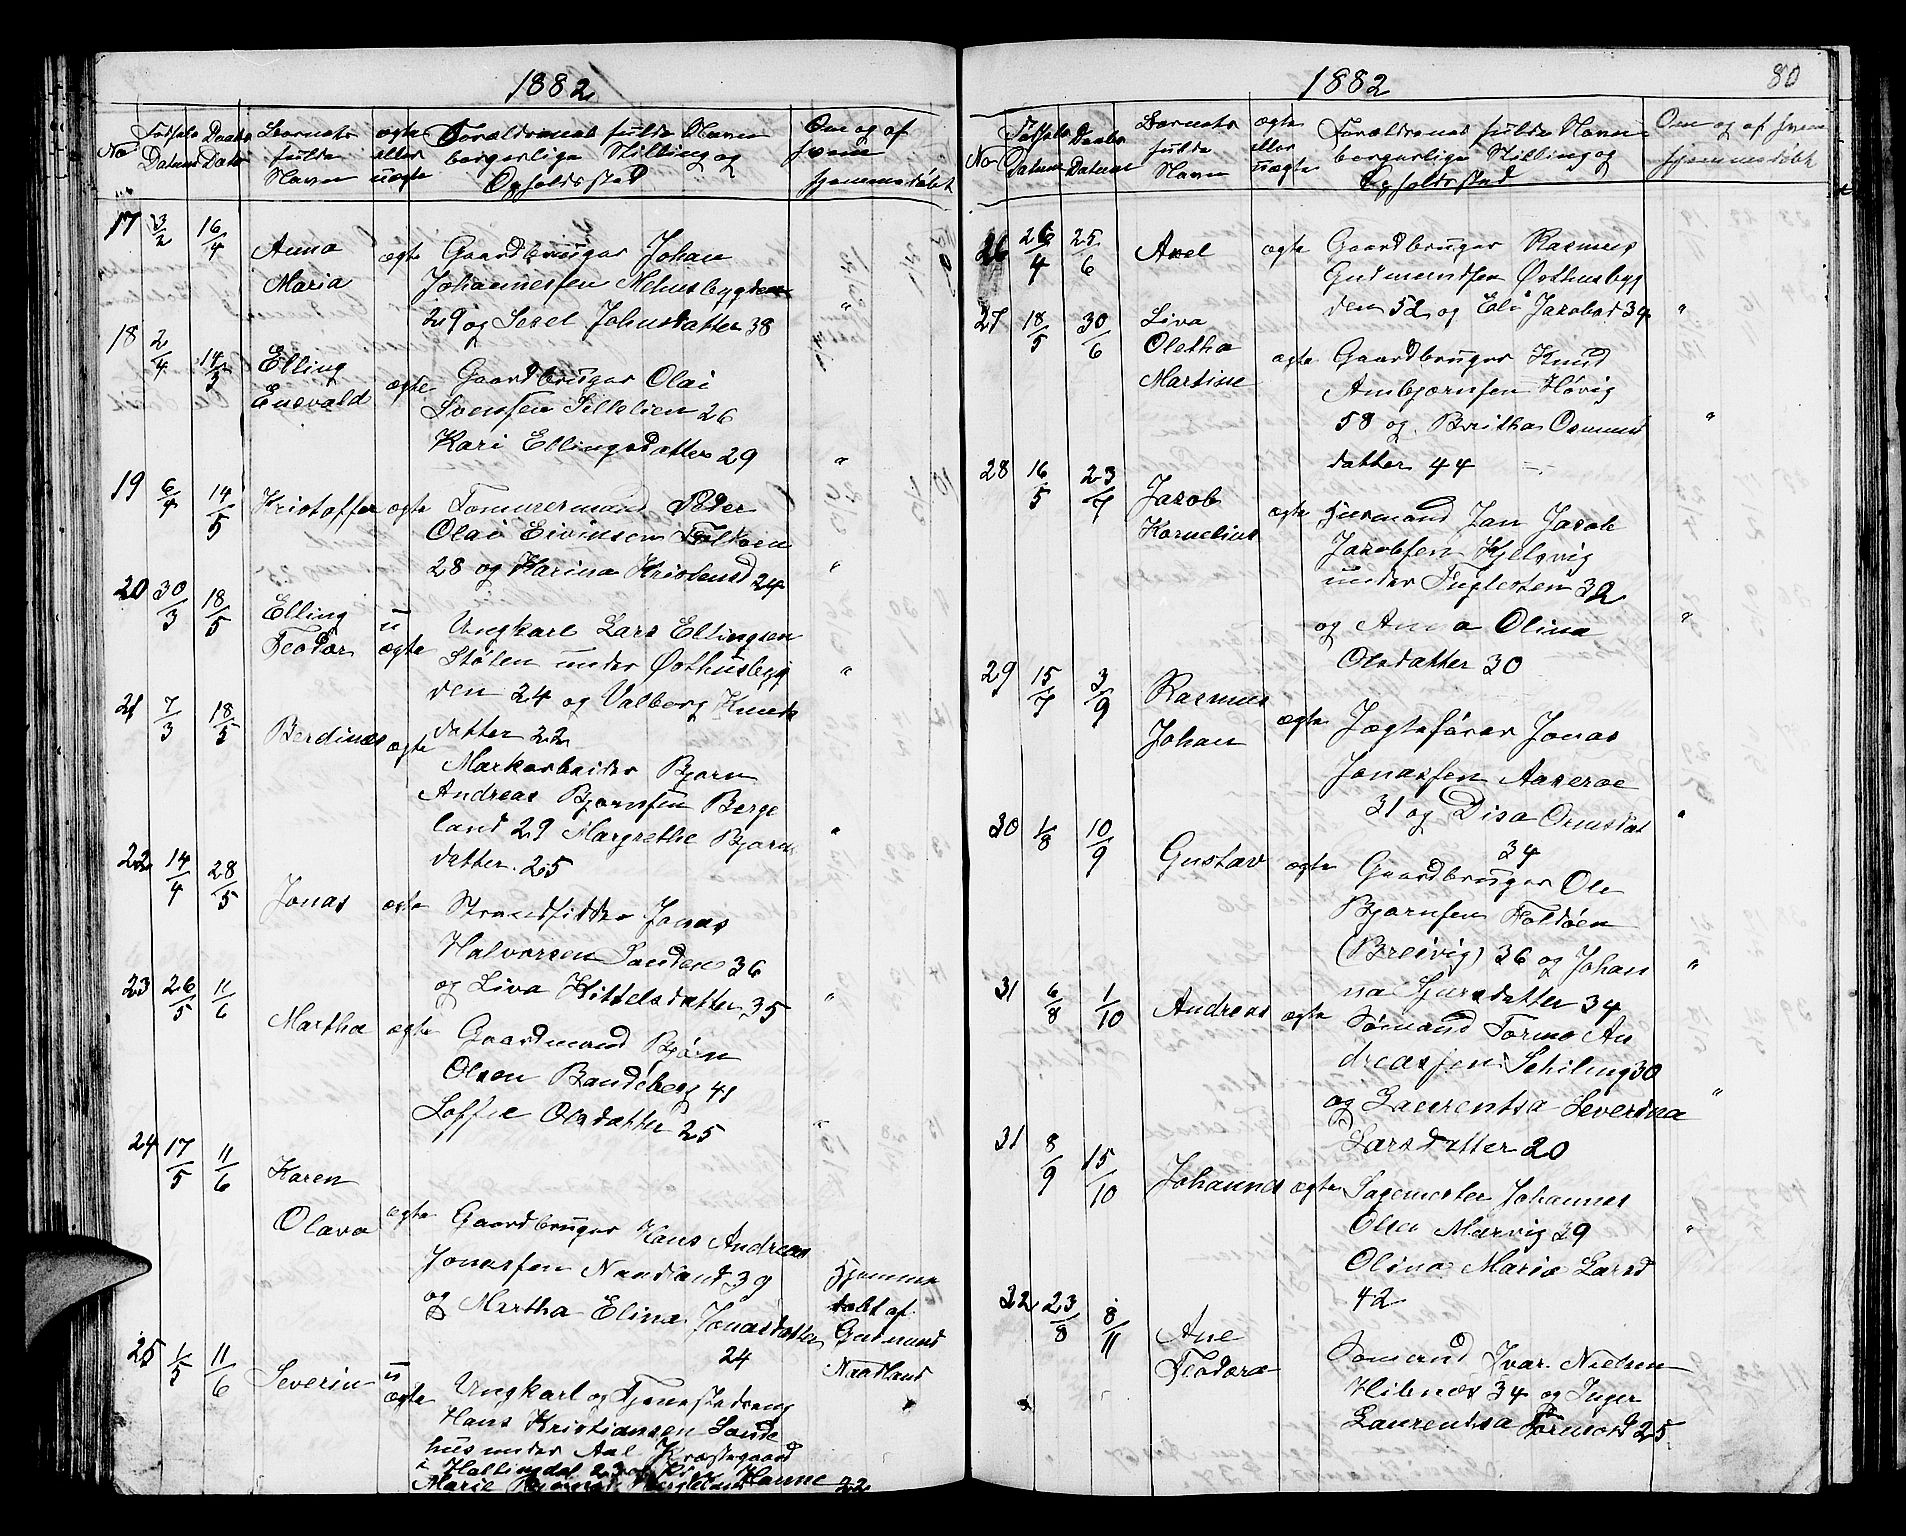 1882
No Fødsels Datum Daabs Dato Barnets fulde Navn ægte eller uægte Forældrenes fulde Navn borgerlige Stilling og Opholdssted Om og af hvem hjemmedøbt
17 3/2 16/4 Anna Maria ægte Gaardbruger Johan
Johannessen Mehusbygden
29 og Sesel Johnsdatter 38 "
18 2/4 14/5 Elling Enevald ægte Gaardbruger Olai
Svensen Tillelien 26
Kari Ellingsdatter 29 "
19 6/4 14/5 Kristoffer ægte Tømmermand Peder
Olai Eivinsen Foldøen
28 og Karina Kristensd 24 "
20 30/3 18/5 Elling Teodor uægte Ungkarl Lars Ellingsen
Stølen under Østhusbyg
den 24 og Valborg Knuds
datter 22 "
21 7/3 18/5 Berdines ægte
Markarbeider Bjørn
Andreas Bjørnsen Berge
land 29 Margrethe Bjørns
datter 25 "
22 14/4 28/5 Jonas ægte Strandsidder Jonas
Halvorsen Sanden 36
og Liva Kittelsdatter 35 "
23 26/5 11/6 Martha ægte Gaardmand Bjørn
Olsen Bandeberg 41
Soffie Olsdatter 25 "
24 17/5 11/6 Karen
Olava ægte Gaardbruger Hans Andreas
Jonassen Naadland 39 Hjemme
og Martha Elina Jonasdatter døbt af
24 Gudmund
Naadland
25 1/5 11/6 Severin uægte Ungkarl og Tjenestedreng
Hans Kristiansen Sande
hus under Aal Præstegaard
i Hallingdal 23 og
Marie Hanne 22
1882
80
No Fødsels Datum Daabs Datum Barnets fulde Navn ægte eller uægte Forældrenes fulde Navn borgerlige Stilling og Opholdssted Om og af hvem hjemmedøbt
26 26/4 25/6 Axel ægte Gaardbruger Rasmus
Gudmundsen Østhusbyg
den 52 og Eli Jacobsd 39 "
27 18/5 30/6 Liva
Oletha
Martine ægte Gaardbruger Knud
Ambjørnsen Høvig
58 og Britha Osmund
datter 44 "
28 16/5 23/7 Jacob
Kornelius ægte Huusmand Jan Jacob
Jacobsen Kjelsvig
under Fuglesten 32
og Anna Olina
Olsdatter 30 "
29 15/7 3/9 Rasmus
Johan ægte Jægtefører Jonas
Jonassen Aaserøe
31 og Disa Ormsdat
34 "
30 1/8 10/9 Gustav ægte Gaardbruger Ole
Bjørnsen Foldøen
(Breivig) 36 og Johan
na Sjursdatter 34 "
31 6/8 1/10 Andreas ægte Sømand Tormo An
dreassen Schiling 30
og Laurentsa Severina
Larsdatter 20 "
31 8/9 15/10 Johannes ægte Sagmester Johannes
Olsen Marvig 39
Olina Maria Larsd
42 "
32 23/8 8/11 Ane
Teodora Sømand Ivar Nielsen
Hibnes 34 og Inger
Laurentsa 25